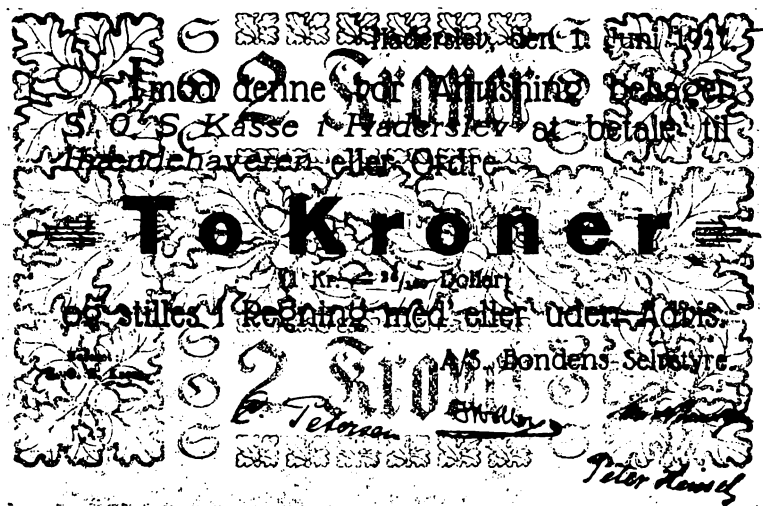 Haderslev, den 1. Juni 1927.
2 Kroner
Imod denne vor Anvisning behager
S O S Kasse i Haderslev at betale til
Ihændehaveren eller Ordre
To Kroner
(1 Kr. = Dollar)
og stilles i Regning med eller uden Advis.
A/S. Bondens Selvstyre.
2 Kroner
P. Petersen
Peter Hensch